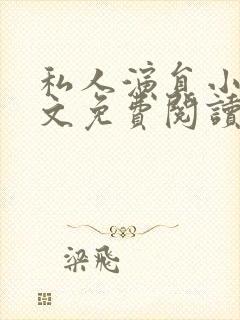 私人演員小
文免費閱讀
梁飛